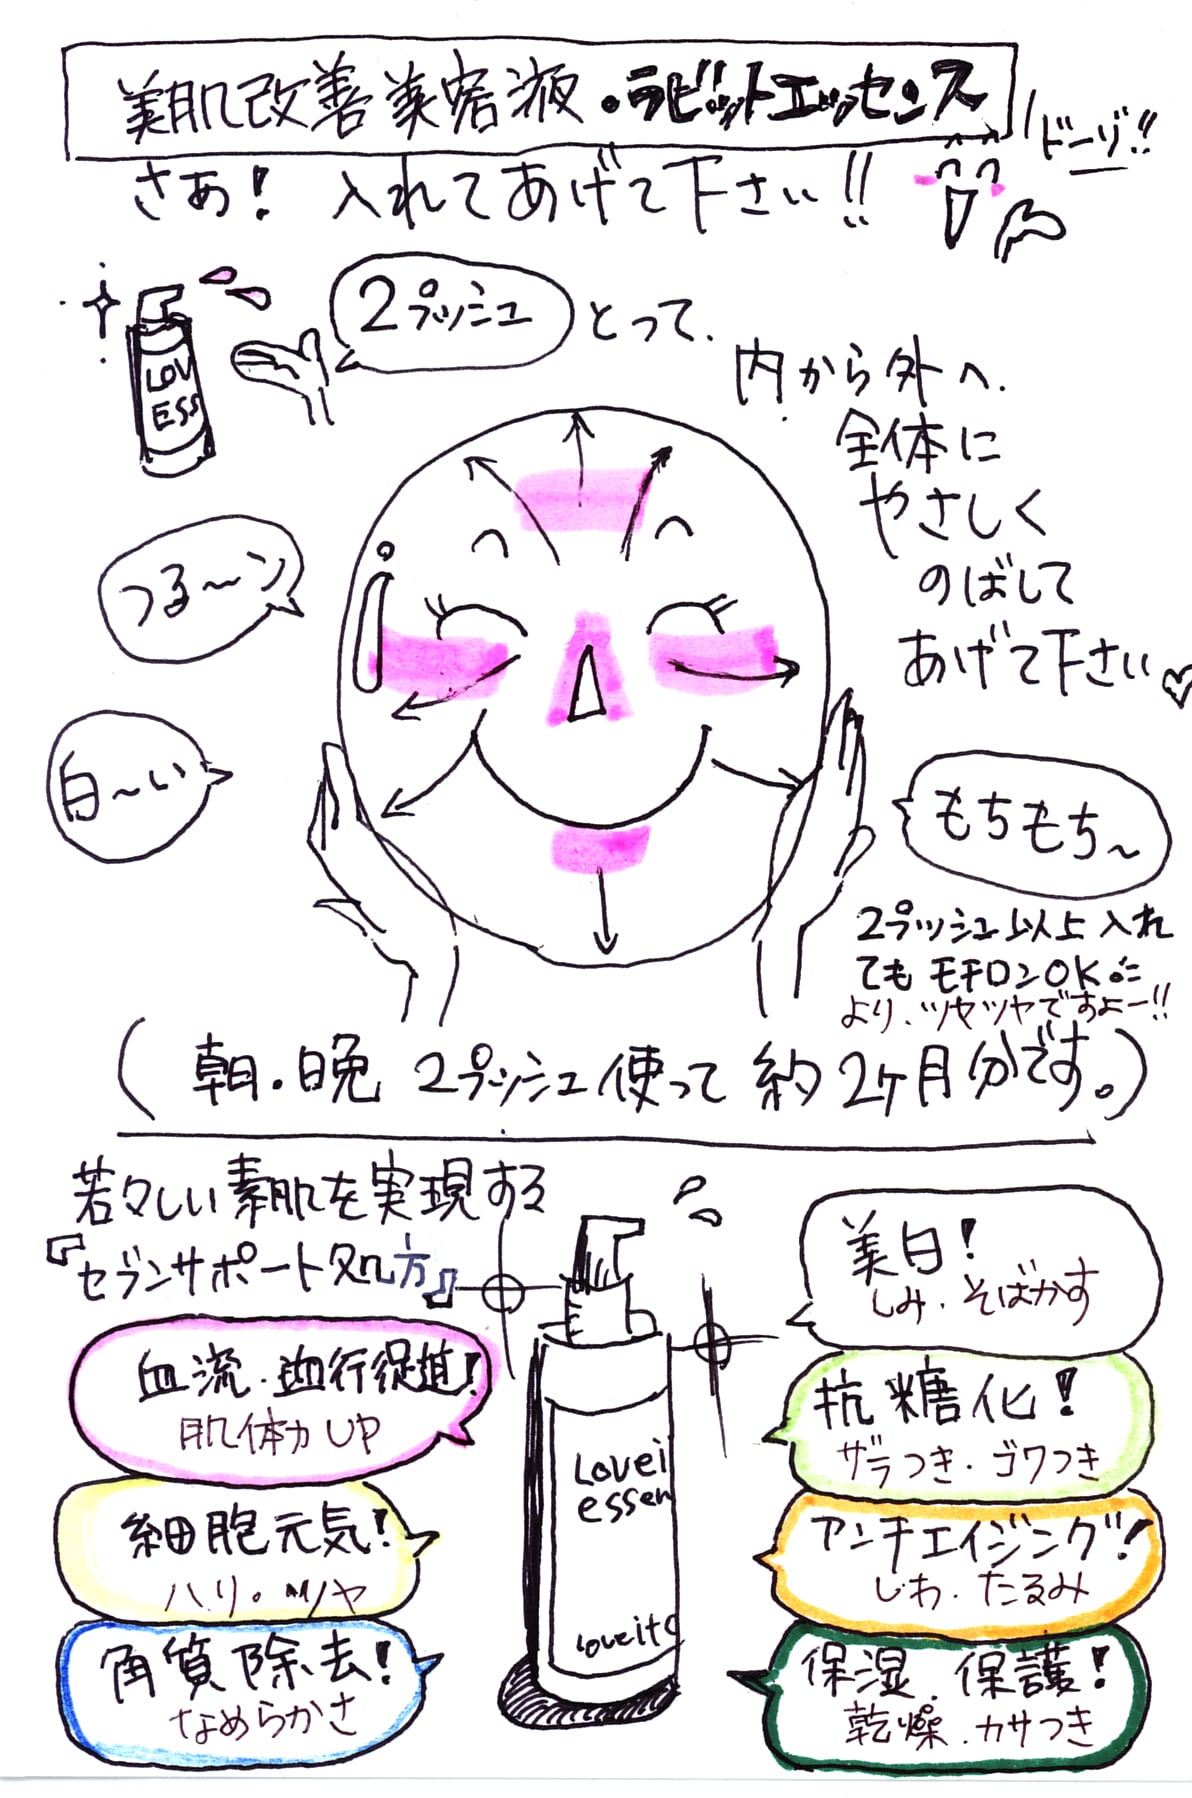 美肌改善美容液・ラビットエッセンス
ドーゾ!!
さあ! 入れてあげて下さい!!
2プッシュ
とって、
LOV
ESS
内から外へ、
全体に
やさしく
のばして
あげて下さい♡
つる〜ン
白〜い
もちもち〜
2プッシュ以上入れ
てもモチロンOK。
より、ツヤツヤですよー!!
(朝・晩 2プッシュ使って約2ヶ月分です。)
若々しい素肌を実現する
『セブンサポート処方』
血流・血行促進!
肌体力UP
細胞元気!
ハリ・ツヤ
角質除去!
なめらかさ
Lovei
essen
Loveito
美白!
しみ・そばかす
抗糖化!
ザラつき・ゴワつき
アンチエイジング!
しわ・たるみ
保湿・保護!
乾燥・カサつき